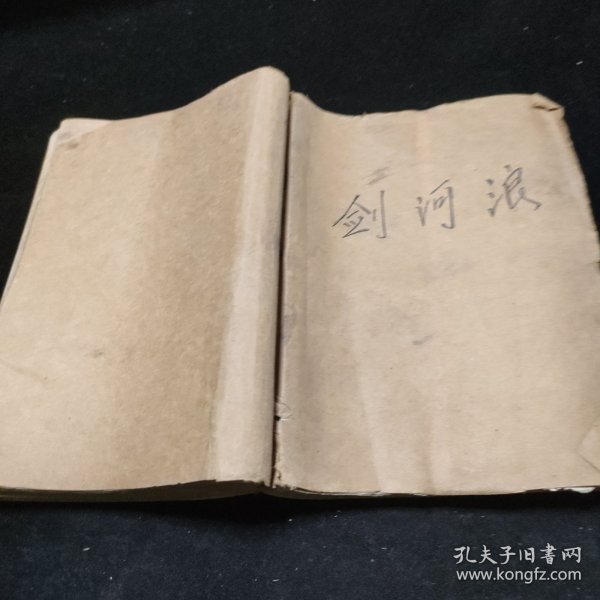 剑河浪
孔夫子旧書网
www.kongfz.com